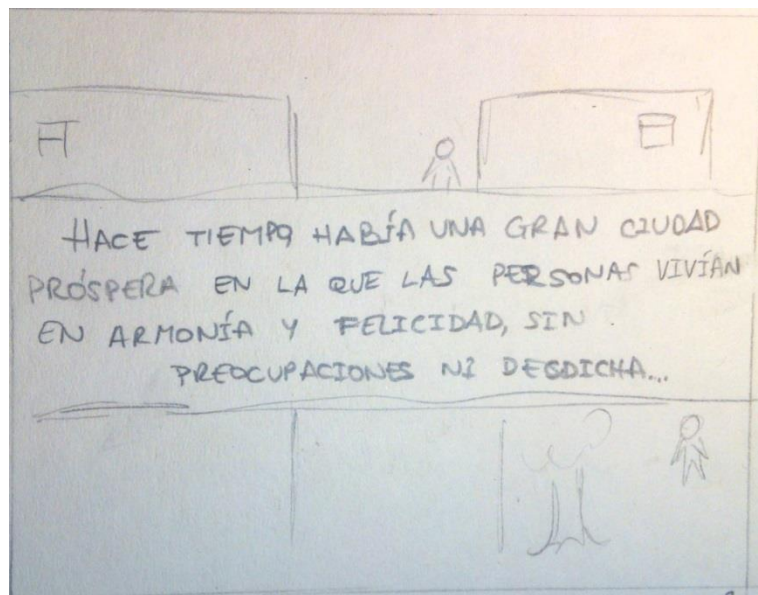 HACE TIEMPO HABÍA UNA GRAN CIUDAD
PRÓSPERA EN LA QUE LAS PERSONAS VIVÍAN
EN ARMONÍA Y FELICIDAD, SIN
PREOCUPACIONES NI DESDICHA...